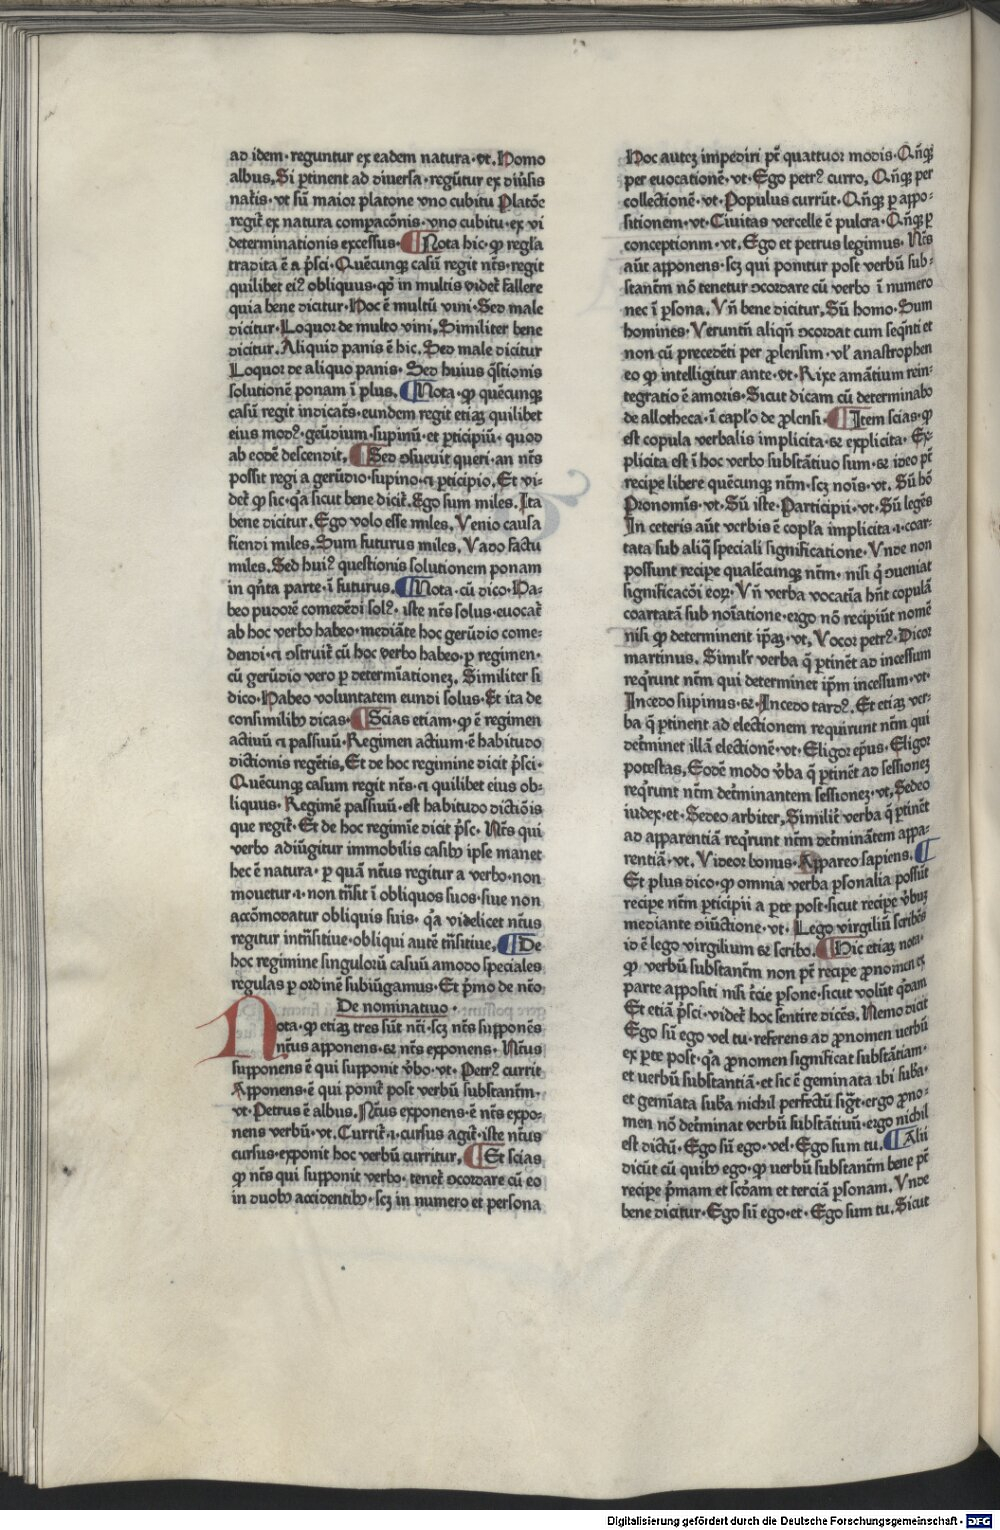 ad idem·reguntur ex eadem natura·vt.Homo
albus.Si ꝑtinent ad diuersa·regūtur ex diūsis
nat̄is·vt sū maior platone vno cubitu Platōe
regit̄ ex natura compac̄onis·vno cubitu·ex vi
determinationis excessus·¶Nota hic·ꝙ regl̄a
tradita ē a p̄sci·Quēcunqꝫ casū regit nt̄s·regit
quilibet eiꝰ obliquus·qd̄ in multis videt̄ fallere
quia bene dicitur·Hoc ē multū vini·Sed male
dicitur·Loquor de multo vini.Similiter bene
dicitur.Aliquid panis ē hic.Sed male dicitur
Loquor de aliquo panis·Sed huius q̄stionis
solutionē ponam i plus.¶Nota·ꝙ quēcunqꝫ
casū regit indicat̄s·eundem regit etiaꝫ quilibet
eius modꝰ·geūdium·supinū·et ꝑticipiū·quod
ab eodē descendit.¶Sed ꝯsueuit queri·an nt̄s
possit regi a gerūdio·supino·⁊ ꝑticipio.Et vi-
det̄ ꝙ sic·qꝛ sicut bene dicit̄.Ego sum miles.Ita
bene dicitur.Ego volo esse miles.Venio causa
fiendi miles.Sum futurus miles.Vado factu
miles.Sed huiꝰ questionis solutionem ponam
in qn̄ta parte·ī futurus.¶Nota·cū dico·Ha-
beo pudorē comedēdi solꝰ·iste nt̄s solus·euocat̄
ab hoc verbo habeo·mediāte hoc gerūdio come-
dendi·⁊ ꝯstruit̄ cū hoc verbo habeo·ꝑ regimen·
cū gerūdio vero ꝑ determīationeꝫ.Similiter si
dico·Habeo voluntatem eundi solus·Et ita de
consimilibꝫ dicas·¶Scias etiam·ꝙ ē regimen
actiuū ⁊ passiuū·Regimen actium·ē habitudo
dictionis regētis.Et de hoc regimine dicit p̄sci·
Quēcunqꝫ casum regit nt̄s·⁊ quilibet eius ob-
liquus·Regimē passiuū·est habitudo dictiōis
que regit̄·Et de hoc regimīe dicit p̄sc·Nt̄s qui
verbo adiūgitur immobilis casibꝫ ipse manet
hec ē natura·ꝑ quā nt̄us regitur a verbo·non
mouetur·ı·non trāsit ī obliquos suos·siue non
accōmodatur obliquis suis·qꝛ videlicet nt̄us
regitur intn̄sitiue·obliqui autē tn̄sitiue.¶De
hoc regimine singulorū casuū amodo speciales
regulas ꝑ ordinē subiūgamus·Et p̄mo de nt̄o
De nominatiuo·
Nota·ꝙ etiaꝫ tres sūt nt̄i·scꝫ nt̄s supponēs
nt̄us apponens·⁊ nt̄s exponens·Nt̄us
supponens ē qui supponit v̄bo·vt·Petrꝰ currit
Apponens·ē qui ponit̄ post verbū substantm̄·
vt·Petrus ē albus.Nt̄us exponens·ē nt̄s expo-
nens verbū·vt.Currit̄·ı·cursus agit̄·iste nt̄us
cursus·exponit hoc verbū curritur.¶Et scias
ꝙ nt̄s qui supponit verbo·tenet̄ ꝯcordare cū eo
in duobꝫ accidentibꝫ·scꝫ in numero et persona
Hoc auteꝫ impediri pt̄ quattuor modis·Qn̄qꝫ
per euocationē·vt·Ego petrꝰ curro.Qn̄qꝫ per
collectionē·vt·Populus currūt.Qn̄qꝫ ꝑ appo-
sitionem·vt·Ciuitas vercelle ē pulcra·Qn̄qꝫ ꝑ
conceptionm·vt.Ego et petrus legimus·Nt̄s
aūt apponens·scꝫ qui ponitur post verbū sub-
stantm̄ nō tenetur ꝯcordare cū verbo ī numero
nec ī ꝑsona.Vn̄ bene dicitur.Sū homo·Sum
homines·Veruntn̄ aliqn̄ ꝯcordat cum seqn̄ti et
non cū precedēti per ꝓlensim·vl̄ anastrophen
eo ꝙ intelligitur ante·vt·Rixe amātium rein-
tegratio ē amoris·Sicut dicam cū determinabo
de allotheca·ī capl̄o de ꝓlensi·¶Item scias·ꝙ
est copula verbalis implicita·⁊ explicita·Ex-
plicita est ī hoc verbo substātiuo sum·⁊ ideo pt̄
recipe libere quēcunqꝫ nt̄m·scꝫ noīs·vt.Sū hō
Pronomīs·vt·Sū iste·Participii·vt·Sū legēs
In ceteris aūt verbis ē copl̄a implicita·ı·coar-
tata sub aliq̄ speciali significatione·Vnde non
possunt recipe qualēcunqꝫ nt̄m·nisi q̄ ꝯueniat
significac̄oi eoꝝ·Vn̄ verba vocatīa hn̄t copulā
coartatā sub noīatione·ergo nō recipiūt nomē
nisi ꝙ determinent ip̄aꝫ·vt.Vocor petrꝰ·Dicor
martinus.Simil̄r verba q̄ ꝑtinēt ad incessum
req̄runt nt̄m qui determinet ip̄m incessum·vt·
Incedo supinus·⁊·Incedo tardꝰ.Et etiaꝫ ver-
ba q̄ ꝑtinent ad electionem requirunt nt̄m qui
det̄minet illā electionē·vt·Eligor ep̄us·Eligor
potestas.Eodē modo v̄ba q̄ ꝑtinēt ad sessioneꝫ
req̄runt nt̄m det̄minantem sessioneꝫ·vt.Sedeo
iudex·et·Sedeo arbiter.Similit̄ verba q̄ ꝑtinēt
ad apparentiā req̄runt nt̄m det̄minātem appa-
rentiā·vt.Videor bonus·Appareo sapiens.¶
Et plus dico·ꝙ omnia verba ꝑsonalia possūt
recipe nt̄m ꝑticipii a ꝑte post·sicut recipe v̄buꝫ
mediante ꝯiūctione·vt·Lego virgiliū scribēs
id ē lego virgilium ⁊ scribo.¶Hic etiaꝫ nota·
ꝙ verbū substantm̄ non pt̄ recipe ꝓnomen ex
parte appositi nisi t̄cie ꝑsone·sicut volūt qd̄am
Et etiā p̄sci·videt̄ hoc sentire dicēs.Nemo dicit
Ego sū ego vel tu·referens ad ꝓnomen uerbū
ex ꝑte post·qꝛ ꝓnomen significat substātiam·
et uerbū substantiā·et sic ē geminata ibi sub̄a·
et gemīata sub̄a nichil perfectū sigt̄·ergo ꝓno-
men nō det̄minat verbū substātiuū·ergo nichil
est dictū·Ego sū ego·vel·Ego sum tu.¶Alii
dicūt cū quibꝫ ego·ꝙ uerbū substantm̄ bene pt̄
recipe p̄mam et scd̄am et terciā ꝑsonam.Vnde
bene dicitur·Ego sū ego·et·Ego sum tu.Sicut
Digitalisierung gefördert durch die Deutsche Forschungsgemeinschaft - DFG